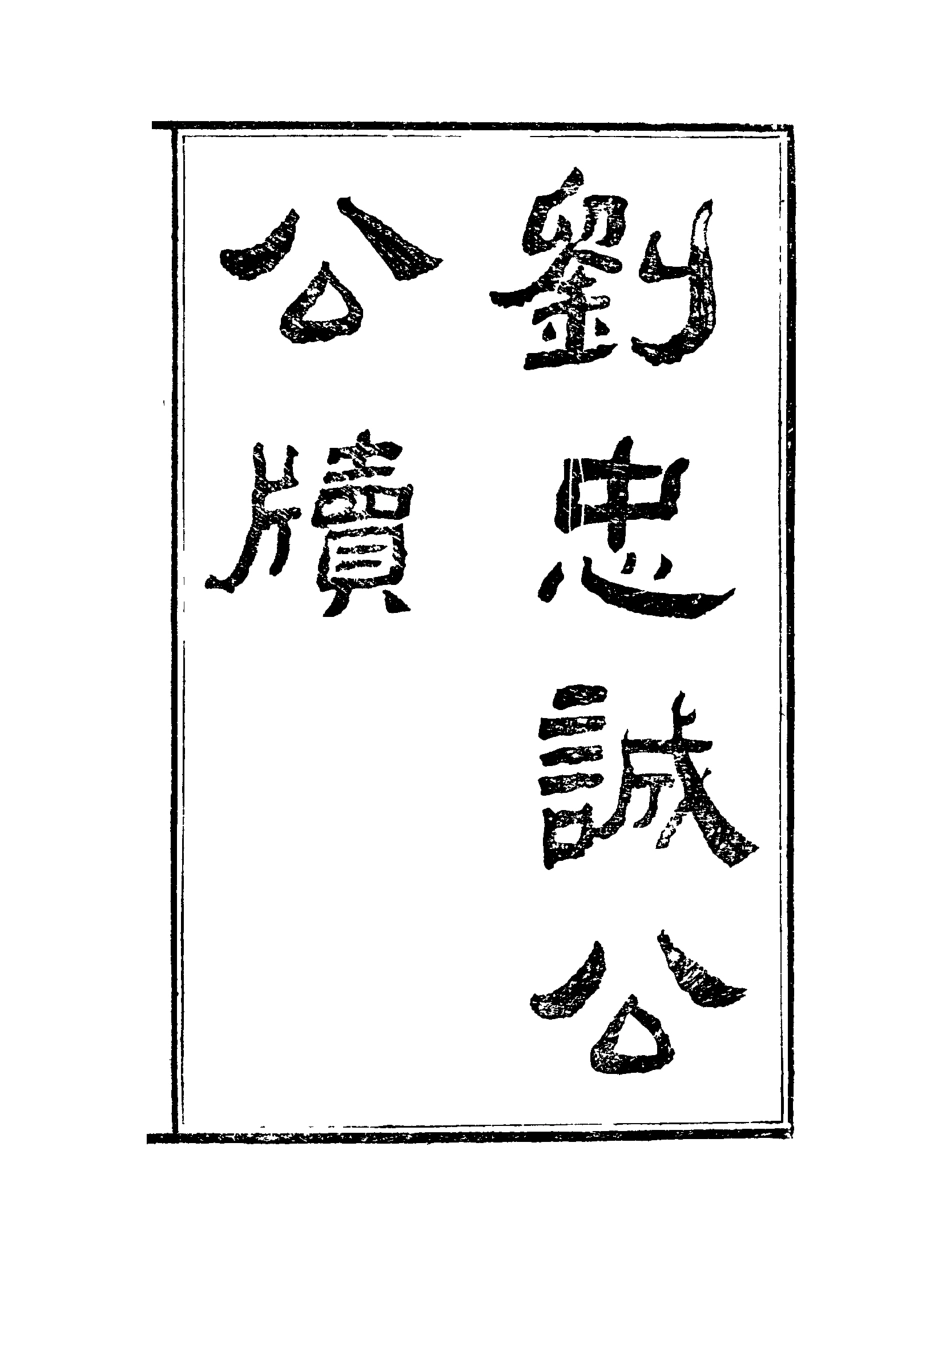 劉忠誠公
公牘